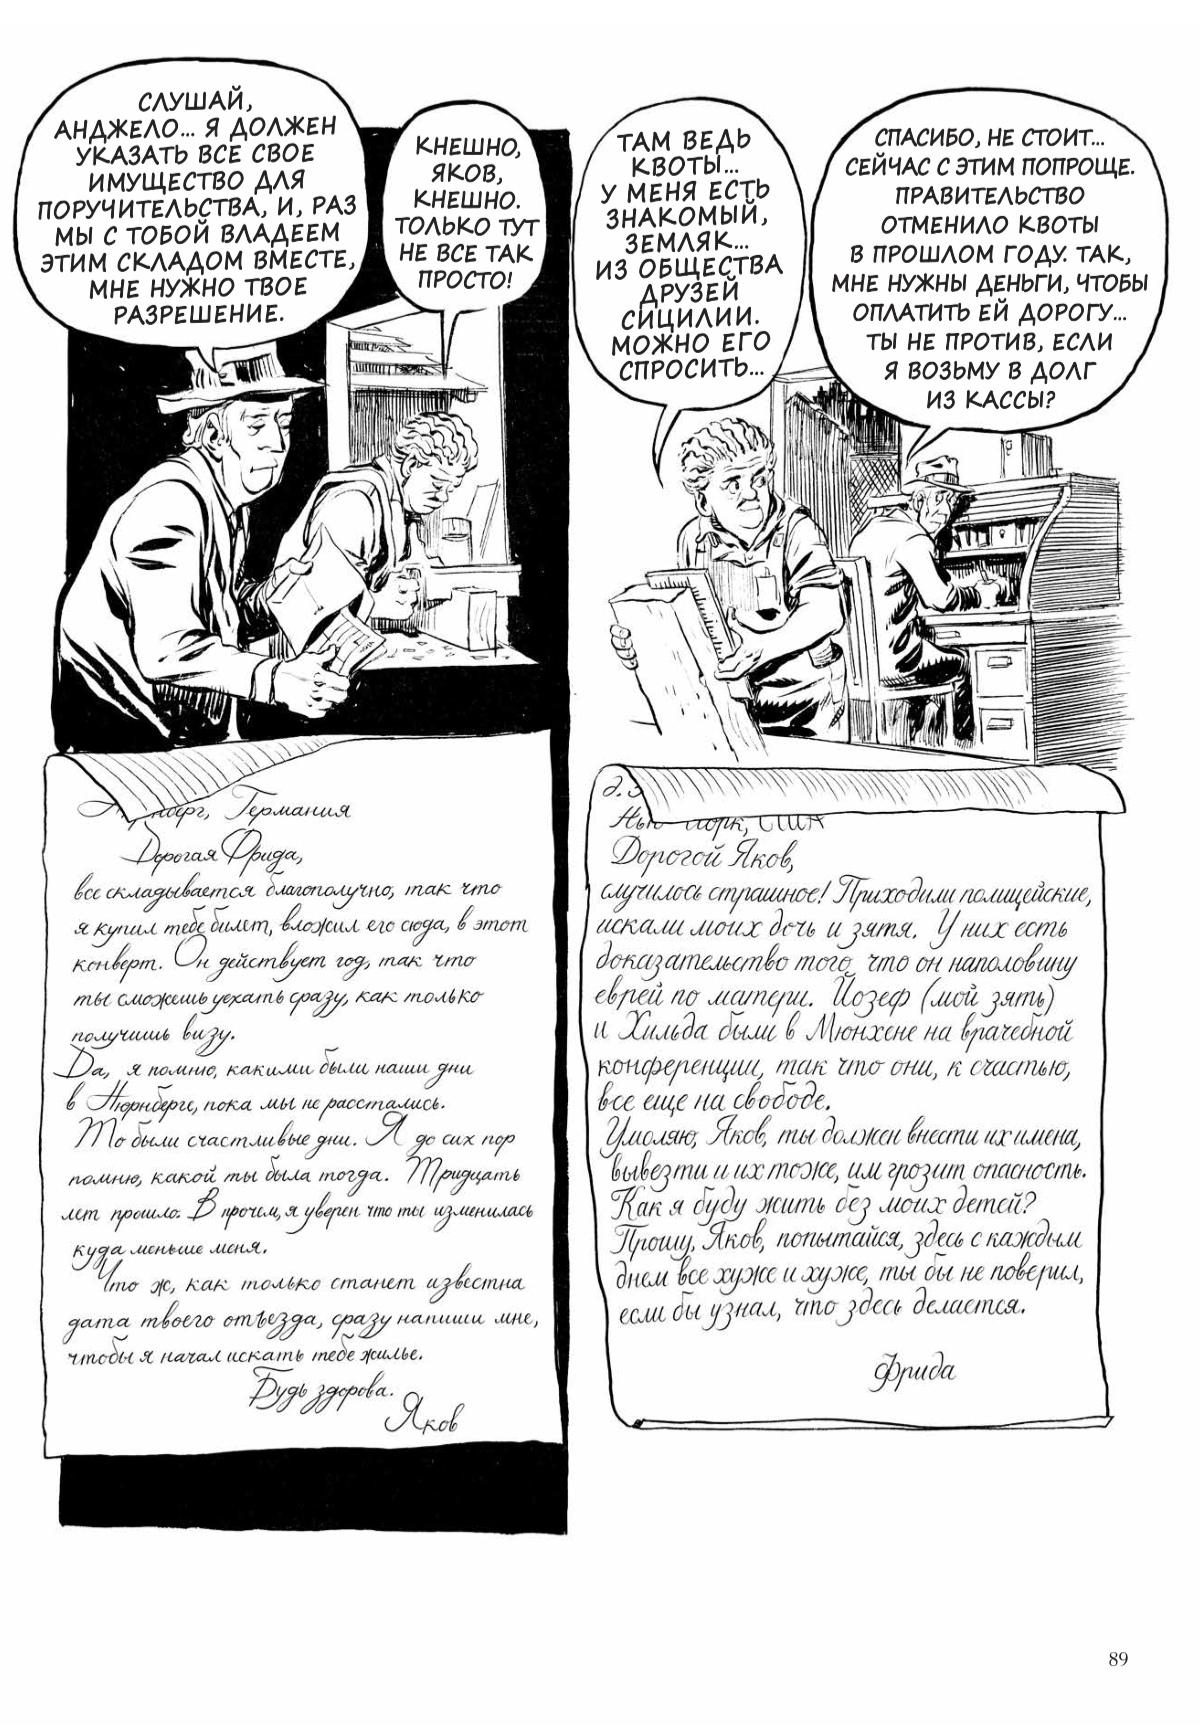 СЛУШАЙ,
АНДЖЕЛО... Я ДОЛЖЕН
УКАЗАТЬ ВСЕ СВОЕ
ИМУЩЕСТВО ДЛЯ
ПОРУЧИТЕЛЬСТВА, И, РАЗ
МЫ С ТОБОЙ ВЛАДЕЕМ
ЭТИМ СКЛАДОМ ВМЕСТЕ,
МНЕ НУЖНО ТВОЕ
РАЗРЕШЕНИЕ.
КНЕШНО,
ЯКОВ,
КНЕШНО.
ТОЛЬКО ТУТ
НЕ ВСЕ ТАК
ПРОСТО!
ТАМ ВЕДЬ
КВОТЫ...
У МЕНЯ ЕСТЬ
ЗНАКОМЫЙ,
ЗЕМЛЯК...
ИЗ ОБЩЕСТВА
ДРУЗЕЙ
СИЦИЛИИ.
МОЖНО ЕГО
СПРОСИТЬ...
СПАСИБО, НЕ СТОИТ...
СЕЙЧАС С ЭТИМ ПОПРОЩЕ.
ПРАВИТЕЛЬСТВО
ОТМЕНИЛО КВОТЫ
В ПРОШЛОМ ГОДУ. ТАК,
МНЕ НУЖНЫ ДЕНЬГИ, ЧТОБЫ
ОПЛАТИТЬ ЕЙ ДОРОГУ...
ТЫ НЕ ПРОТИВ, ЕСЛИ
Я ВОЗЬМУ В ДОЛГ
ИЗ КАССЫ?
Германия
Дорогая Фрида,
все складывается благополучно, так что
я купил тебе билет, вложил его сюда, в этот
конверт. Он действует год, так что
ты сможешь уехать сразу, как только
получишь визу.
Да, я помню, какими были наши дни
в Нюрнберге, пока мы не расстались.
То были счастливые дни. Я до сих пор
помню, какой ты была тогда. Тридцать
лет прошло. В прочем, я уверен что ты изменилась
куда меньше меня.
Что ж, как только станет известна
дата твоего отъезда, сразу напиши мне,
чтобы я начал искать тебе жилье.
Будь здорова.
Яков
Нью-Йорк, США
Дорогой Яков,
случилось страшное! Приходили полицейские,
искали моих дочь и зятя. У них есть
доказательство того, что он наполовину
еврей по матери. Йозеф (мой зять)
и Хильда были в Мюнхене на врачебной
конференции, так что они, к счастью,
все еще на свободе.
Умоляю, Яков, ты должен внести их имена,
вывезти и их тоже, им грозит опасность.
Как я буду жить без моих детей?
Прошу, Яков, попытайся, здесь с каждым
днем все хуже и хуже, ты бы не поверил,
если бы узнал, что здесь делается.
Фрида
89